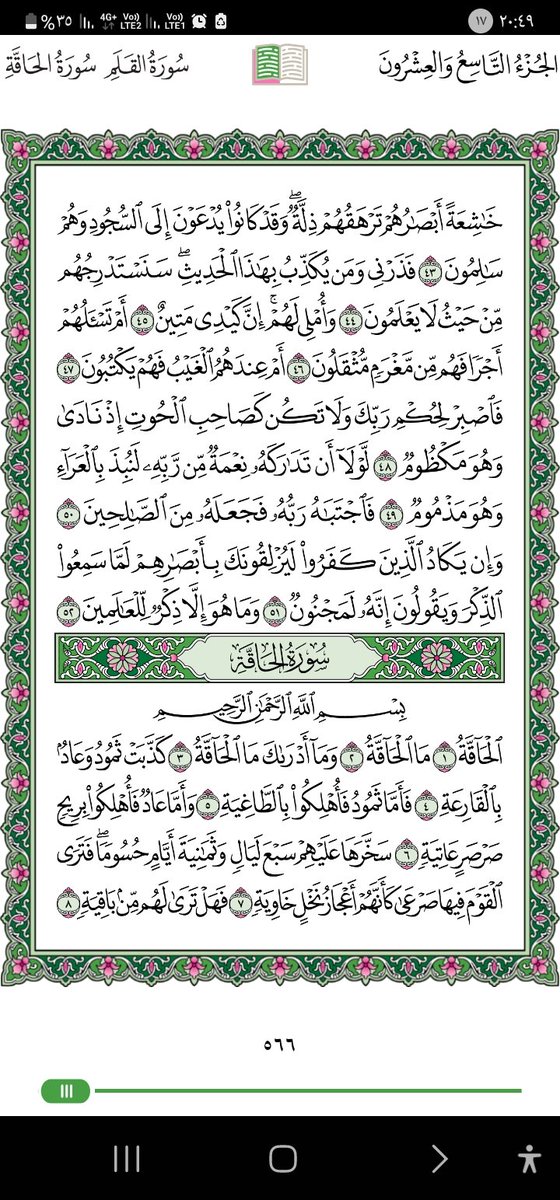 ٢٠:٤٩ ١٧ Vo)) LTE1 Vo)) 4G+ LTE2 %٣٥
الجُزْءُ التَّاسِعُ وَالعِشْرُونَ سُورَةُ القَلَمِ سُورَةُ الحَاقَّةِ
خَٰشِعَةً أَبْصَٰرُهُمْ تَرْهَقُهُمْ ذِلَّةٌۖ وَقَدْ كَانُوا۟ يُدْعَوْنَ إِلَى ٱلسُّجُودِ وَهُمْ
سَٰلِمُونَ ٤٣ فَذَرْنِى وَمَن يُكَذِّبُ بِهَٰذَا ٱلْحَدِيثِۖ سَنَسْتَدْرِجُهُم
مِّنْ حَيْثُ لَا يَعْلَمُونَ ٤٤ وَأُمْلِى لَهُمْۚ إِنَّ كَيْدِى مَتِينٌ ٤٥ أَمْ تَسْـَٔلُهُمْ
أَجْرًا فَهُم مِّن مَّغْرَمٍ مُّثْقَلُونَ ٤٦ أَمْ عِندَهُمُ ٱلْغَيْبُ فَهُمْ يَكْتُبُونَ ٤٧
فَٱصْبِرْ لِحُكْمِ رَبِّكَ وَلَا تَكُن كَصَاحِبِ ٱلْحُوتِ إِذْ نَادَىٰ
وَهُوَ مَكْظُومٌ ٤٨ لَّوْلَآ أَن تَدَٰرَكَهُۥ نِعْمَةٌ مِّن رَّبِّهِۦ لَنُبِذَ بِٱلْعَرَآءِ
وَهُوَ مَذْمُومٌ ٤٩ فَٱجْتَبَٰهُ رَبُّهُۥ فَجَعَلَهُۥ مِنَ ٱلصَّٰلِحِينَ ٥٠
وَإِن يَكَادُ ٱلَّذِينَ كَفَرُوا۟ لَيُزْلِقُونَكَ بِأَبْصَٰرِهِمْ لَمَّا سَمِعُوا۟
ٱلذِّكْرَ وَيَقُولُونَ إِنَّهُۥ لَمَجْنُونٌ ٥١ وَمَا هُوَ إِلَّا ذِكْرٌ لِّلْعَٰلَمِينَ ٥٢
سُورَةُ الحَاقَّةِ
بِسْمِ ٱللَّهِ ٱلرَّحْمَٰنِ ٱلرَّحِيمِ
ٱلْحَآقَّةُ ١ مَا ٱلْحَآقَّةُ ٢ وَمَآ أَدْرَىٰكَ مَا ٱلْحَآقَّةُ ٣ كَذَّبَتْ ثَمُودُ وَعَادٌۢ
بِٱلْقَارِعَةِ ٤ فَأَمَّا ثَمُودُ فَأُهْلِكُوا۟ بِٱلطَّاغِيَةِ ٥ وَأَمَّا عَادٌ فَأُهْلِكُوا۟ بِرِيحٍ
صَرْصَرٍ عَاتِيَةٍ ٦ سَخَّرَهَا عَلَيْهِمْ سَبْعَ لَيَالٍ وَثَمَٰنِيَةَ أَيَّامٍ حُسُومًاۖ فَتَرَى
ٱلْقَوْمَ فِيهَا صَرْعَىٰ كَأَنَّهُمْ أَعْجَازُ نَخْلٍ خَاوِيَةٍ ٧ فَهَلْ تَرَىٰ لَهُم مِّنۢ بَاقِيَةٍ ٨
٥٦٦